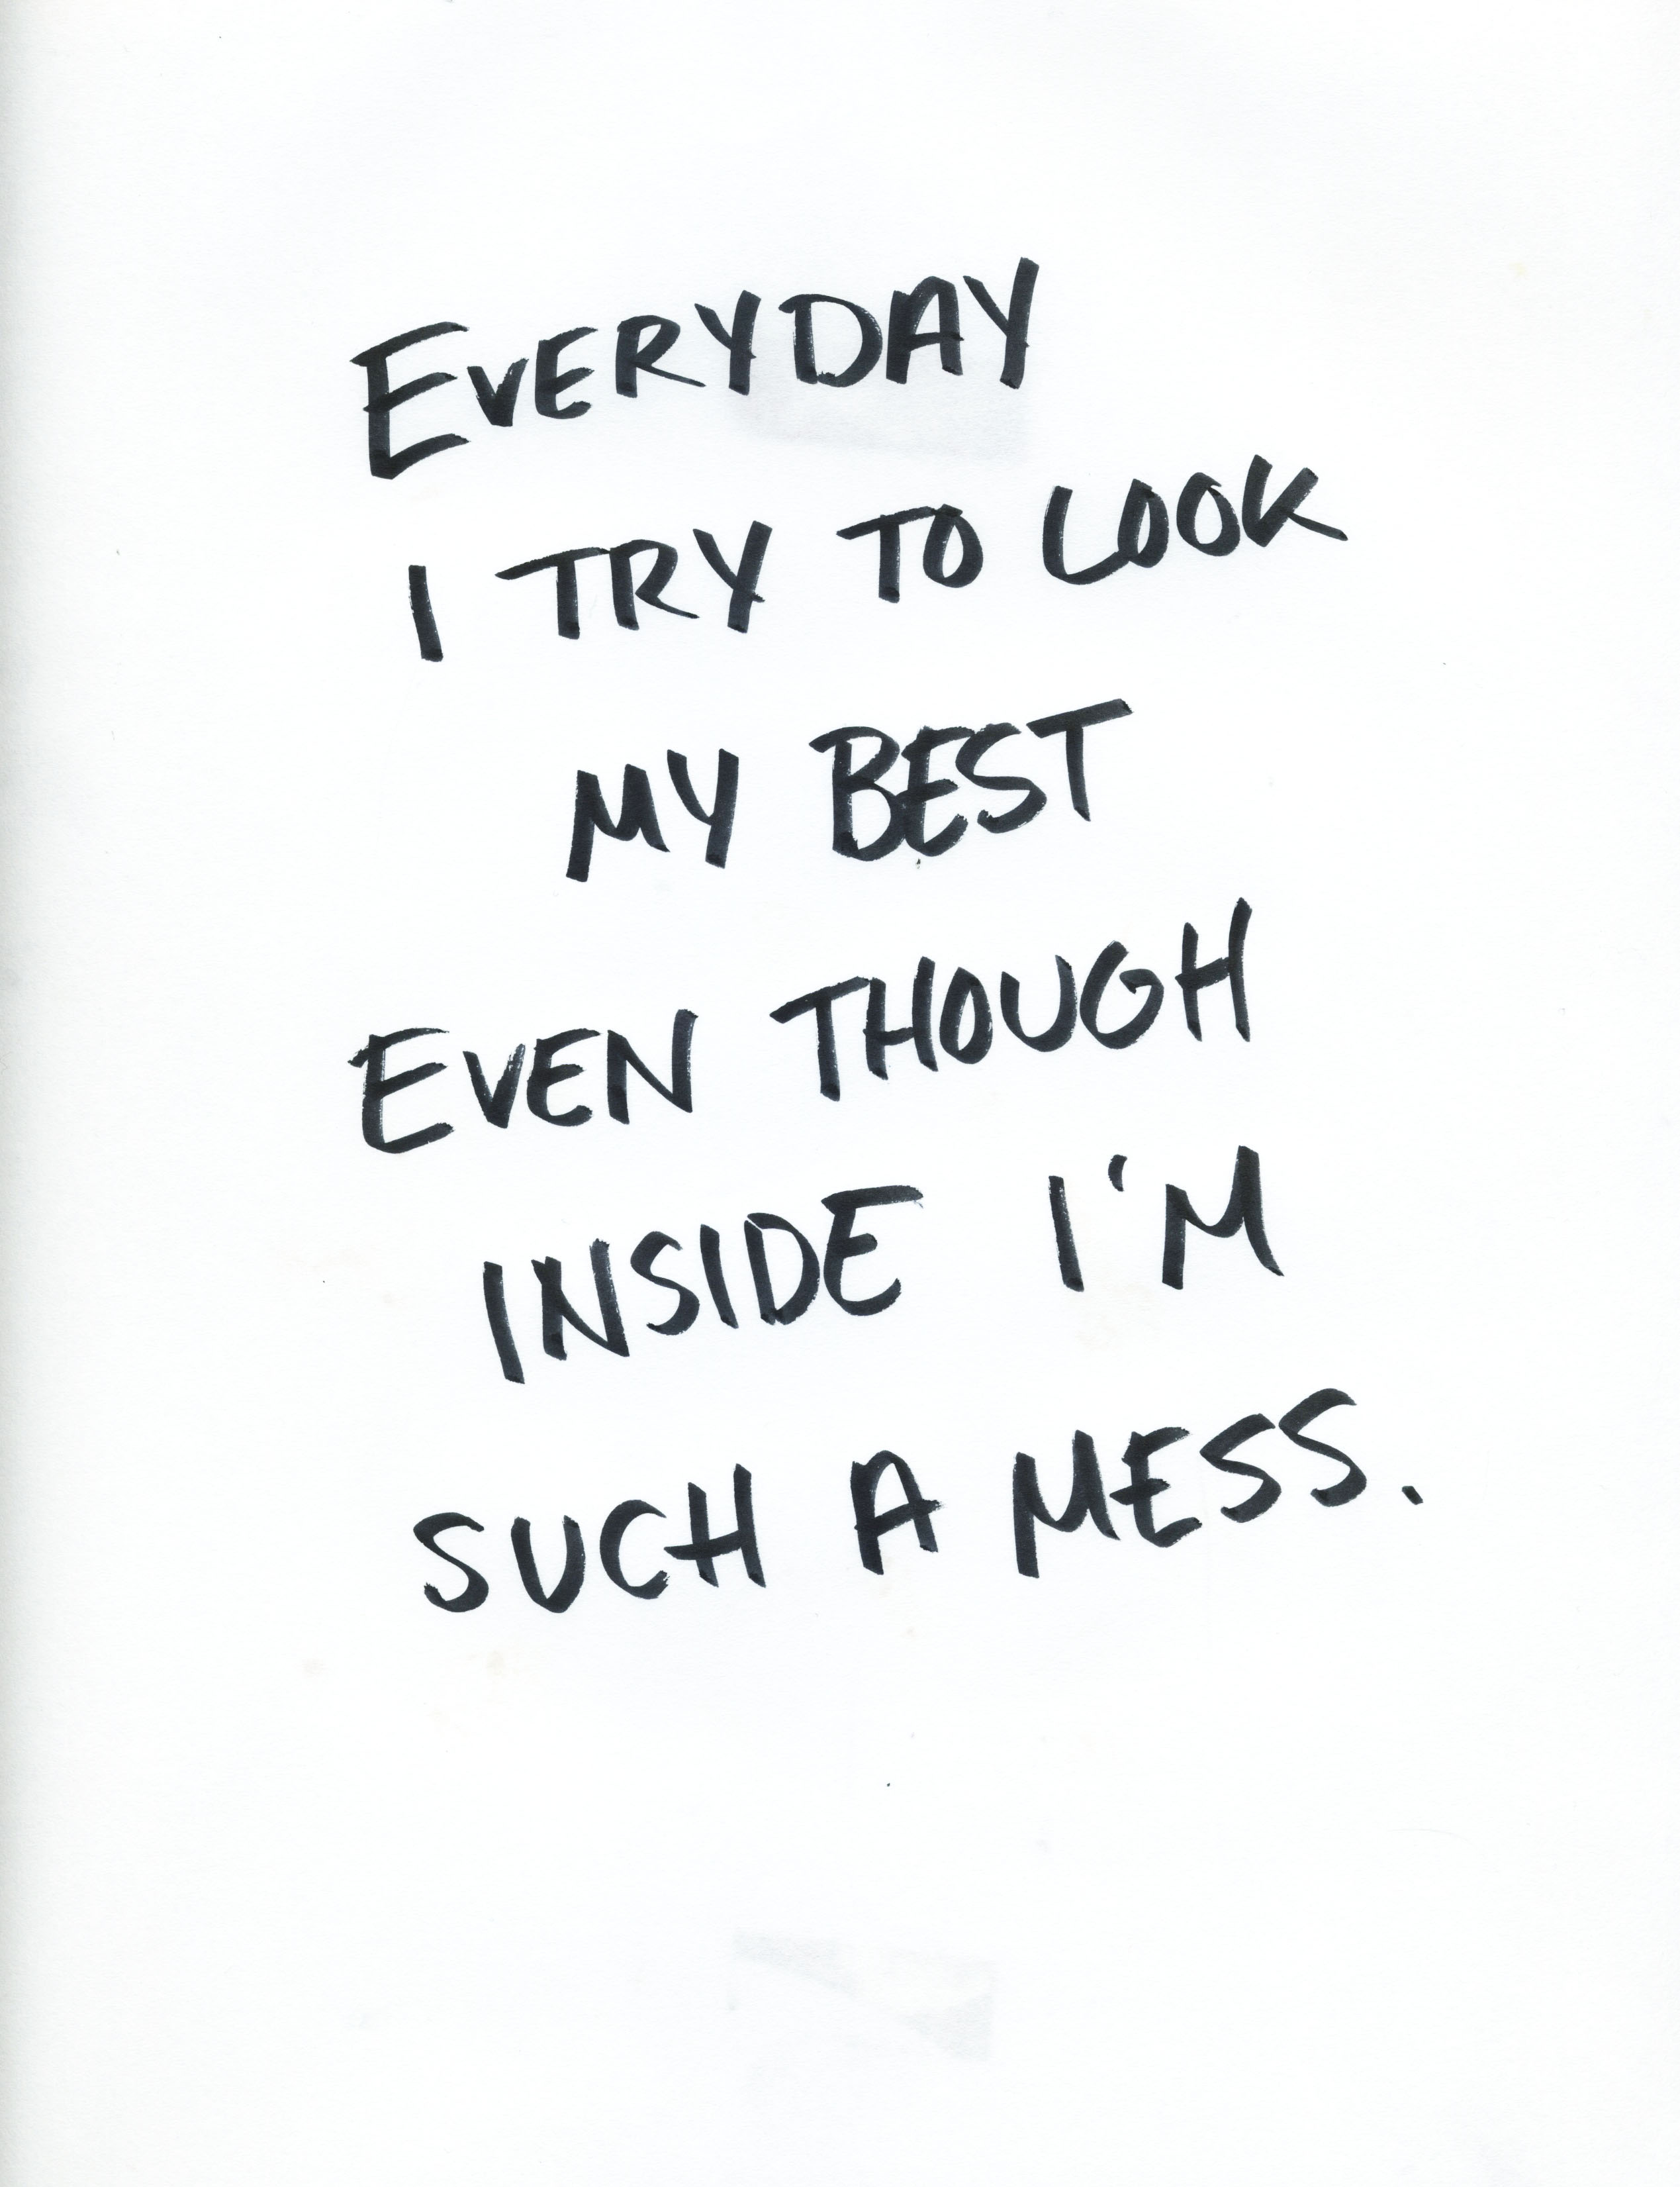 EVERYDAY
I TRY TO LOOK
MY BEST
EVEN THOUGH
INSIDE I'M
SUCH A MESS.